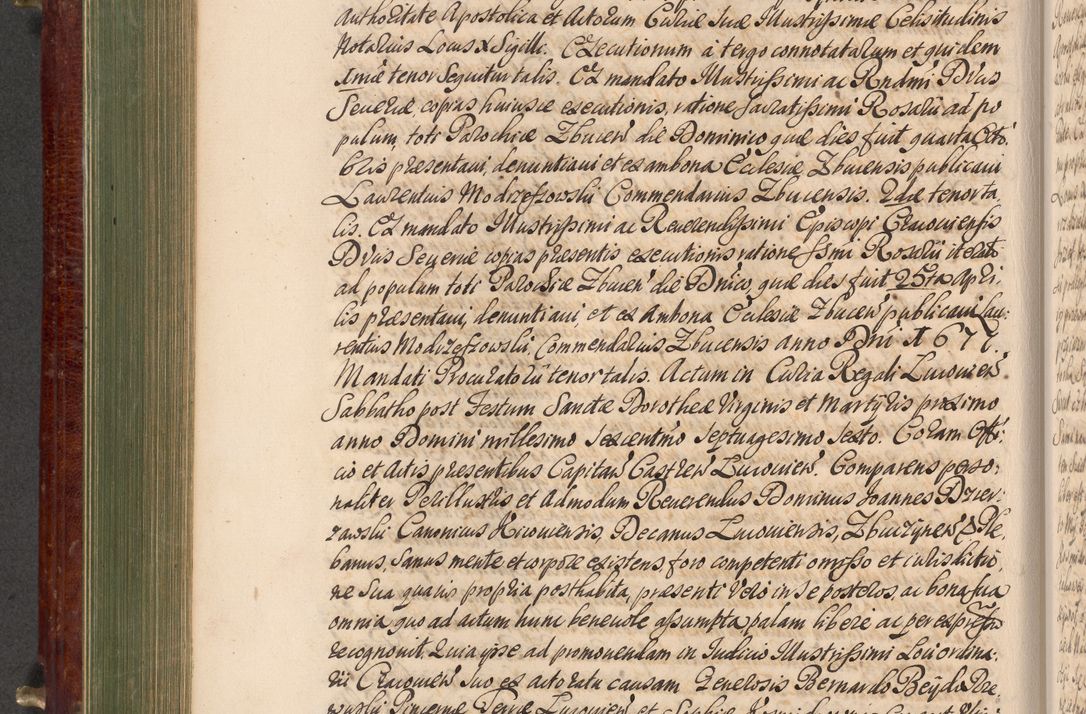 Authoritate Apostolica et Actorum Curiæ suæ Illustrissimæ Celsitudinis
Notarius Locus x Sigilli. Executionum à tergo connotatarum et quidem
1mæ tenor sequitur talis. Ex mandato Illustrissimi ac Rndmi D
Seueriæ, copias huiusce executionis, ratione sacratissimi Rosarii ad po
pulum, toti Parochiæ Zbucen̄ die Dominico quæ dies fuit quarta Octo
bris præsentaui, denuntiaui et ex ambona Ecclesiæ Zbucensis publicaui
Laurentius Modrzeszowski Commendarius Zbucensis. 2dæ tenor ta
lis. Ex mandato Illustrissimi ac Reuerendissimi Episcopi Cracouiensis
Ducis Seueriæ copias præsentis executionis ratione ssmi Rosarii iterato
ad populum toti Parochiæ Zbucen̄ die Dnico, quæ dies fuit 25ta Apri,
lis præsentaui, denuntiaui, et ex Ambona Ecclesiæ Zbucen̄ publicaui Lau:
rentius Modrzeszowski, Commendarius Zbucensis anno Dni 1677.
Mandati Procuratorii tenor talis. Actum in Curia Regali
Sabbatho post Festum Sanctæ Dorotheæ Virginis et Martyris proximo
anno Domini millesimo sexcentmo septuagesimo sexto. Coram Offi:
cio et Actis præsentibus Capitan̄ Castren̄ Comparens perso:
naliter Perillustris et Admodum Reuerendus Dominus Joannes Dzier:
zawski Canonicus Kiiouiensis, Decanus Zbuczynen̄ Ple
banus, sanus mente et corpore existens, foro competenti omisso et iurisdictio,
ne sua quauis propria posthabita, præsenti vero in se posteros, ac bona sua
omnia quo ad actum hunc beneuole assumpta, palam libere ac per expressum
recognouit. Quia ipse ad promouendam in Iudicio Illustrissimi Loci ordina:
rii Cracouien̄ suo ex actoratu causam Generosis Bernardo
Pincernæ Terræ et Sophiæ